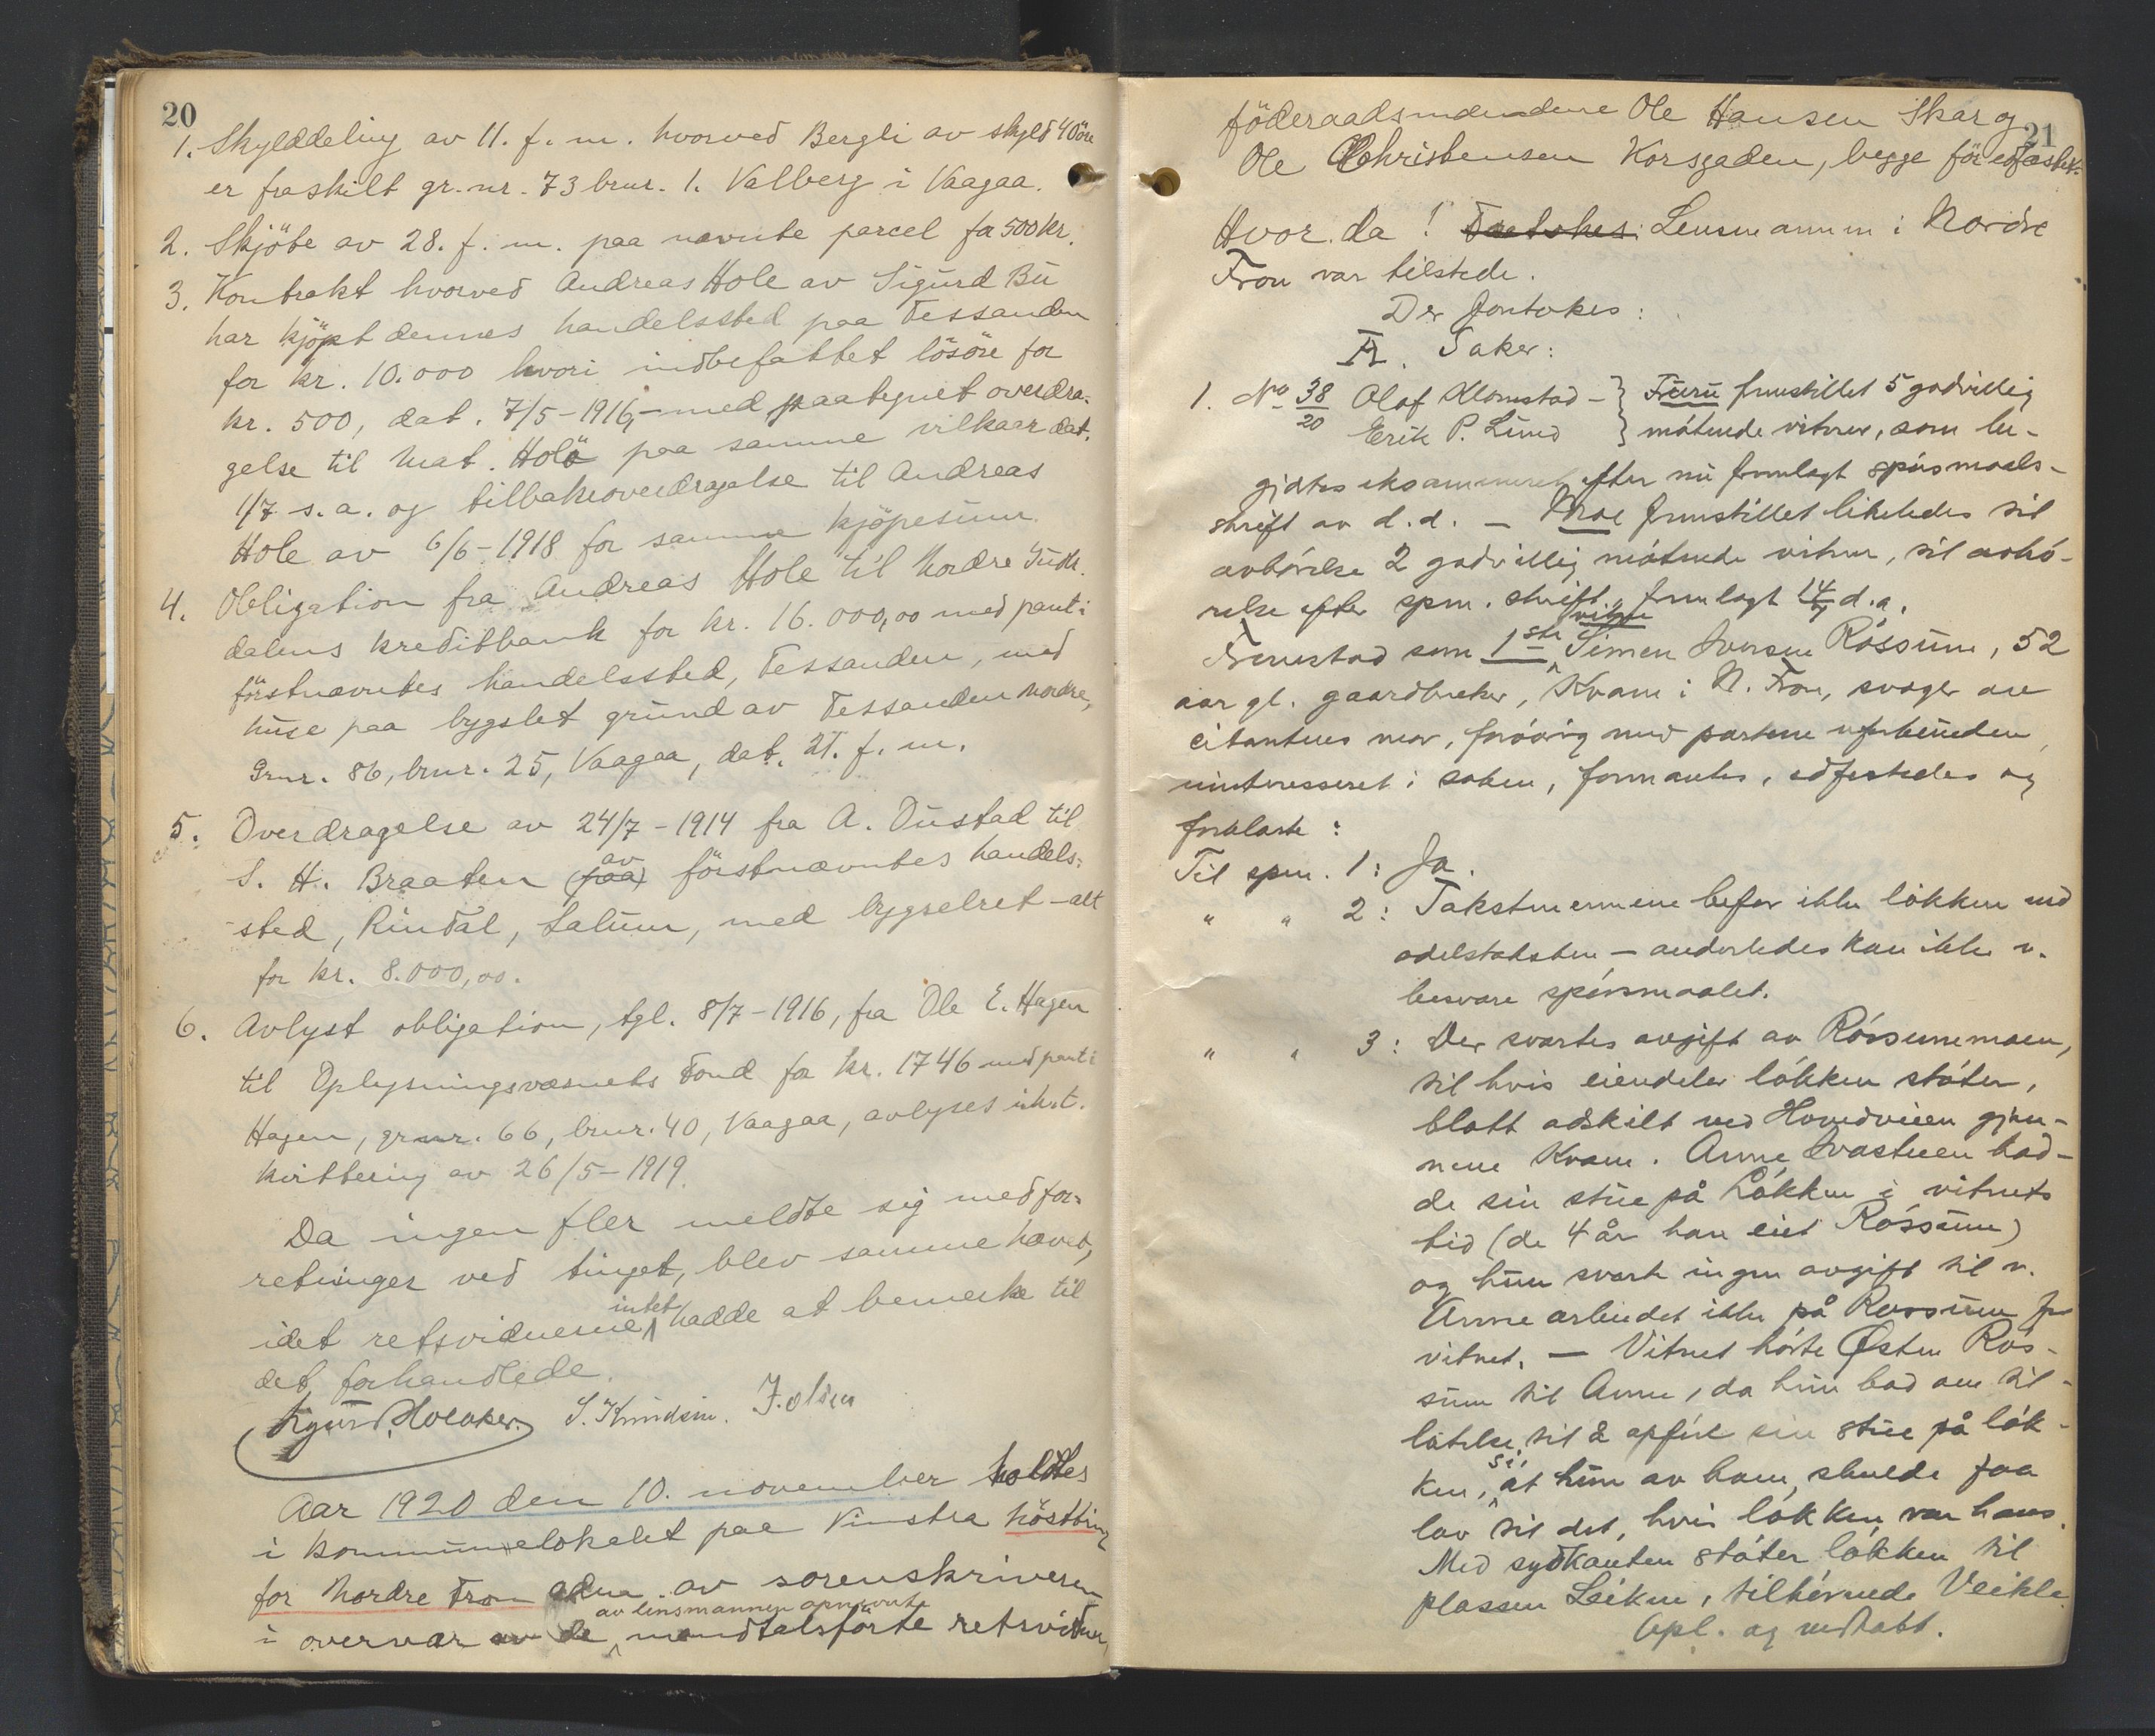 20
1. Skylddeling av 11. f. m. hvorved Bergli av skyld 40 öre
er fraskilt gr. nr. 73 brnr. 1. Valberg i Vaagaa.
2. Skjöte av 28. f. m. paa nævnte parcel for 500 kr.
3. Kontrakt hvorved Andreas Hole av Sigurd Bu
har kjöpt dennes handelssted paa Tessanden
for kr. 10.000 hvori indbefattet lösöre for
kr. 500, dat. 7/5-1916, - med paategnet overdra-
gelse til Mat. Holö paa samme vilkaar dat.
1/7 s. a. og tilbakeoverdragelse til Andreas
Hole av 6/6-1918 for samme kjöpesum.
4. Obligation fra Andreas Hole til Nordre Gudb.
dalens kreditbank for kr. 16.000,00 med pant i
förstnævntes handelssted, Tessanden, med
huse paa bygslet grund av Tessanden nordre,
Grnr. 86, brnr. 25, Vaagaa, dat. 21. f. m.
5. Overdragelse av 24/7-1914 fra A. Dustad til
S. H. Braaten (paa) av förstnævntes handels-
sted, Rindal, Lalum, med bygselret - alt
for kr. 8.000,00.
6. Avlyst obligation, tgl. 8/7-1916, fra Ole E. Hagen
til Oplysningsvæsnets Fond for kr. 1746 med pant i
Hagen, grnr. 66, brnr. 40, Vaagaa, avlyses iht.
kvittering av 26/5-1919.
Da ingen fler meldte sig med for-
retninger ved tinget, blev samme hævet,
idet retsvidnerne intet hadde at bemerke til
det forhandlede.
Sigurd Holaker. S. Knudsen. J. Olsen
Aar 1920 den 10. november holdtes
i kommunelokalet paa Vinstra höstting
for Nordre Fron adm. av sorenskriveren
i overvær av de av lensmannen opnævnte mandtalsförte retsvidner,
21
föderaadsmændene Ole Hansen Skar og
Ole Christensen Korsgaden, begge för edfæstet.
Hvor da! Foretokes: Lensmannen i Nordre
Fron var tilstede.
Der foretokes:
A. Saker:
1. No 38/20 Olaf Klomstad - } Furu fremstillet 5 godvillig
Erik P. Lund } mötende vitner, som be-
gjærtes eksamineret efter nu fremlagt spörsmaals-
skrift av d.d. - Moe fremstillet likeledes til
avhörelse 2 godvillig mötende vitner, til avhö-
relse efter spm. skrift, fremlagt 14/9 d. a.
Fremstod som 1ste vitne Simen Iversen Rössum, 52
aar gl. gaardbruker, Kvam i N. Fron, svoger av
citantens mor, forövrig med partene uforbunden,
uinteresseret i saken, formantes, edfestedes og
forklarte:
Til spm. 1: Ja.
" " 2: Takstmennene befor ikke lökken ved
odelstaksten - anderledes kan ikke v.
besvare spörsmaalet.
" " 3: Der svartes avgift av Rössummoen,
til hvis eiendeler lökken stöter,
blott adskilt ved Hovedveien gjen-
nem Kvam. Anne Svastuen had-
de sin stue på Lökken i vitnets
tid (de 4 år han eiet Rössum)
og hun svarte ingen avgift til v.
Anne arbeidet ikke på Rössum for
vitnet. - Vitnet hörte Østen Rös-
sum til Anne, da hun bad om til-
latelse til å opföre sin stue på lök-
ken, si, at hun av ham skulde faa
lov til det, hvis lökken var hans.
Med sydkanten stöter lökken til
plassen Leiken, tilhörende Veikle.
Opl. og vedtatt.